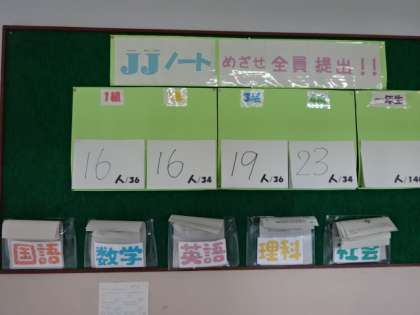 JJノート めざせ 全員 提出!!
1組 2組 3組 4組 一年生
16人/36 16人/34 19人/36 23人/34 人/140
国語 数学 英語 理科 社会